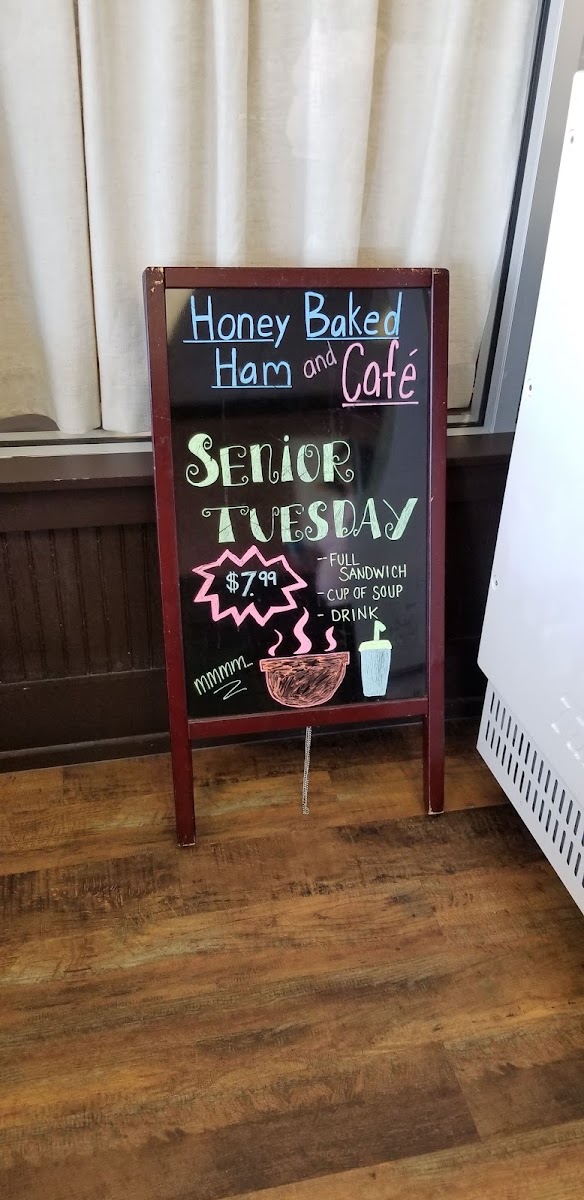 Honey Baked
Ham and Café
SENIOR
TUESDAY
$7.99
-- FULL
SANDWICH
- CUP OF SOUP
- DRINK
mmmm